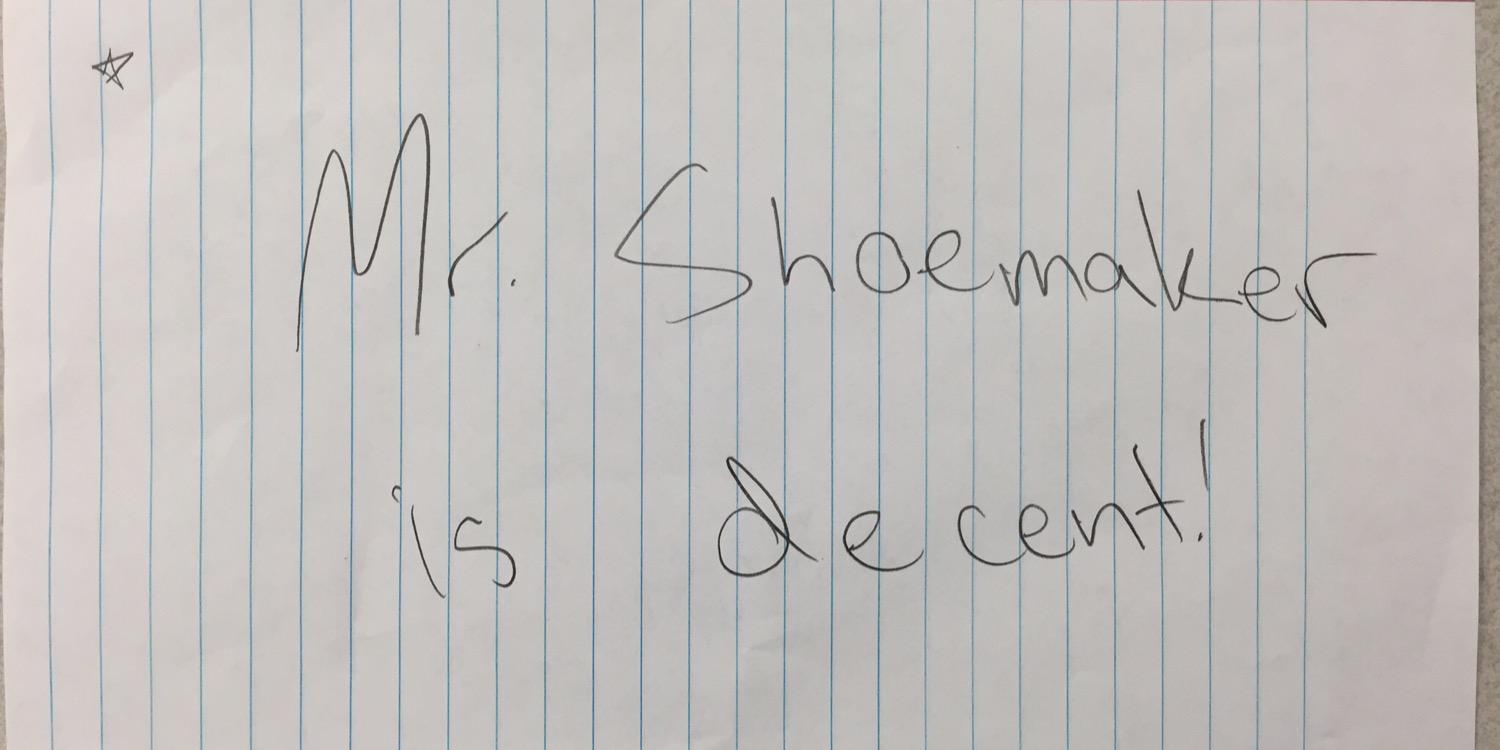 Mr. Shoemaker
is decent!